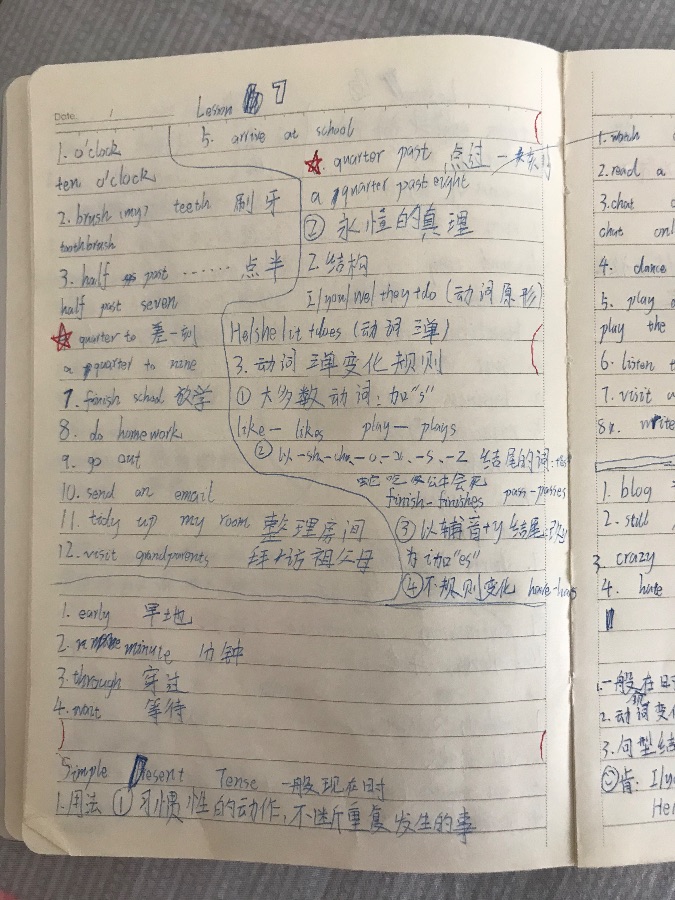 Date
Lesson 7
1. o'clock
ten o'clock
2. brush (my) teeth 刷牙
toothbrush
3. half past ...... 点半
half past seven
quarter to 差一刻
a quarter to nine
7. finish school 放学
8. do homework
9. go out
10. send an email
11. tidy up my room 整理房间
12. visit grandparents 拜访祖父母
5. arrive at school
quarter past 点过一刻
a quarter past eight
② 永恒的真理
2. 结构
I/you/we/they+do (动词原形)
He/she/it+does (动词三单)
3. 动词三单变化规则
① 大多数动词:加"s"
like - likes play - plays
② 以-sh -ch -o -x -s -z 结尾的词:
finish - finishes pass - passes
③ 以辅音+y 结尾
为i加"es"
④ 不规则变化 have - has
1. early 早地
2. minute 分钟
3. through 穿过
4. wait 等待
Simple Present Tense 一般现在时
1. 用法 ① 习惯性的动作,不断重复发生的事
1. watch
2. read a
3. chat
chat onl
4. dance
5. play
play the
6. listen t
7. visit
8. write
1. blog
2. still
3. crazy
4. hate
1. 一般在日
2. 动词变化
3. 句型结
肯: I/you
He